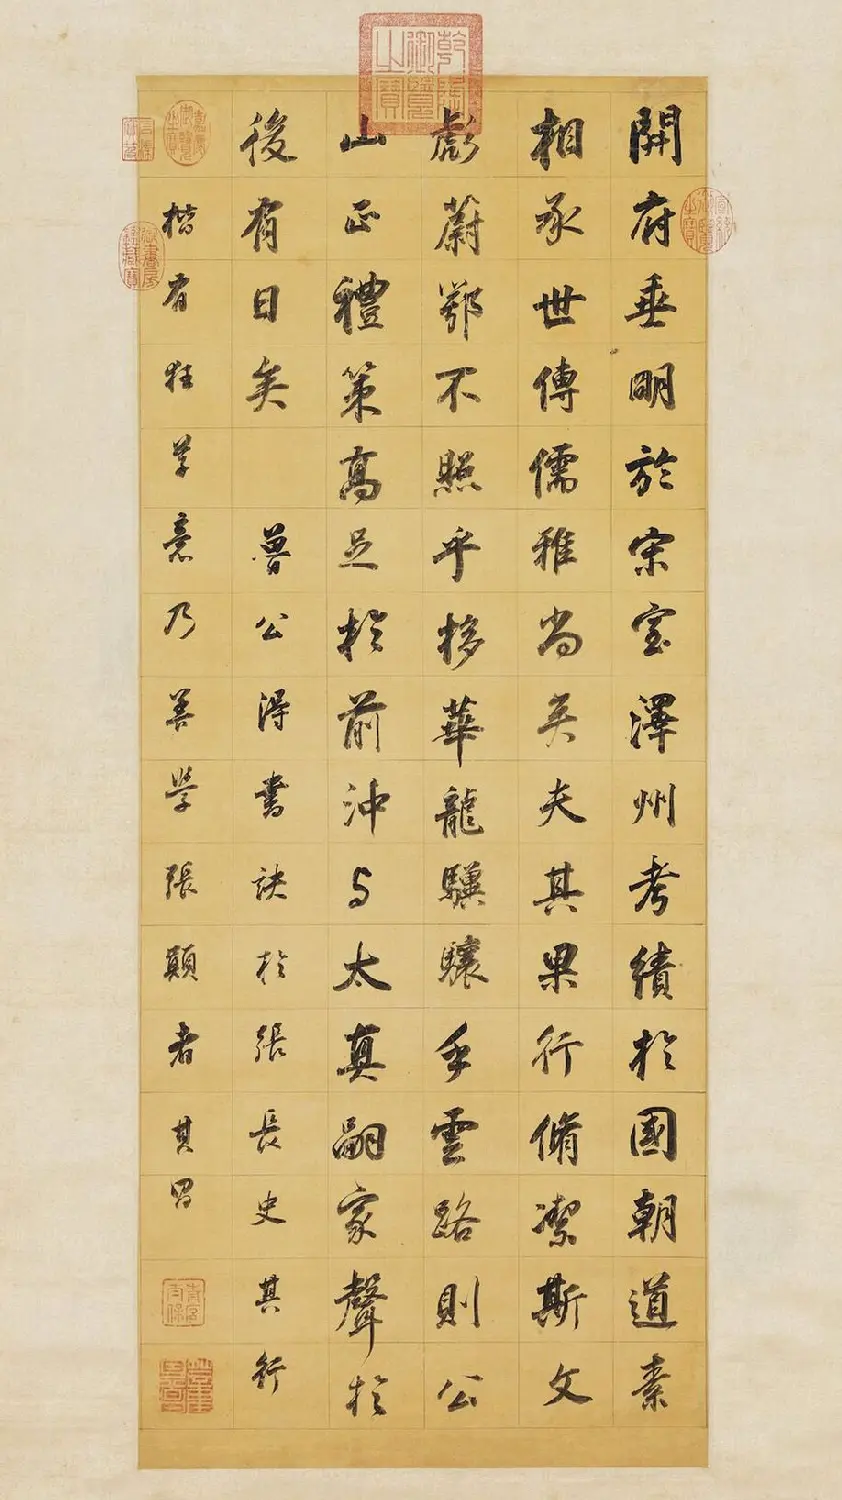 開府垂明於宋室澤州考績於國朝道素
相承世傳儒雅尚矣夫其果行脩潔斯文
彪蔚鄂不照乎棣華龍驥驤乎雲路則公
山正禮策高足於前沖与太真嗣家聲於
後有日矣 魯公得書訣於張長史其行
楷有狂草意乃善學張顛者其昌
乾隆御覽之寶
嘉慶御覽之寶
宣統御覽之寶